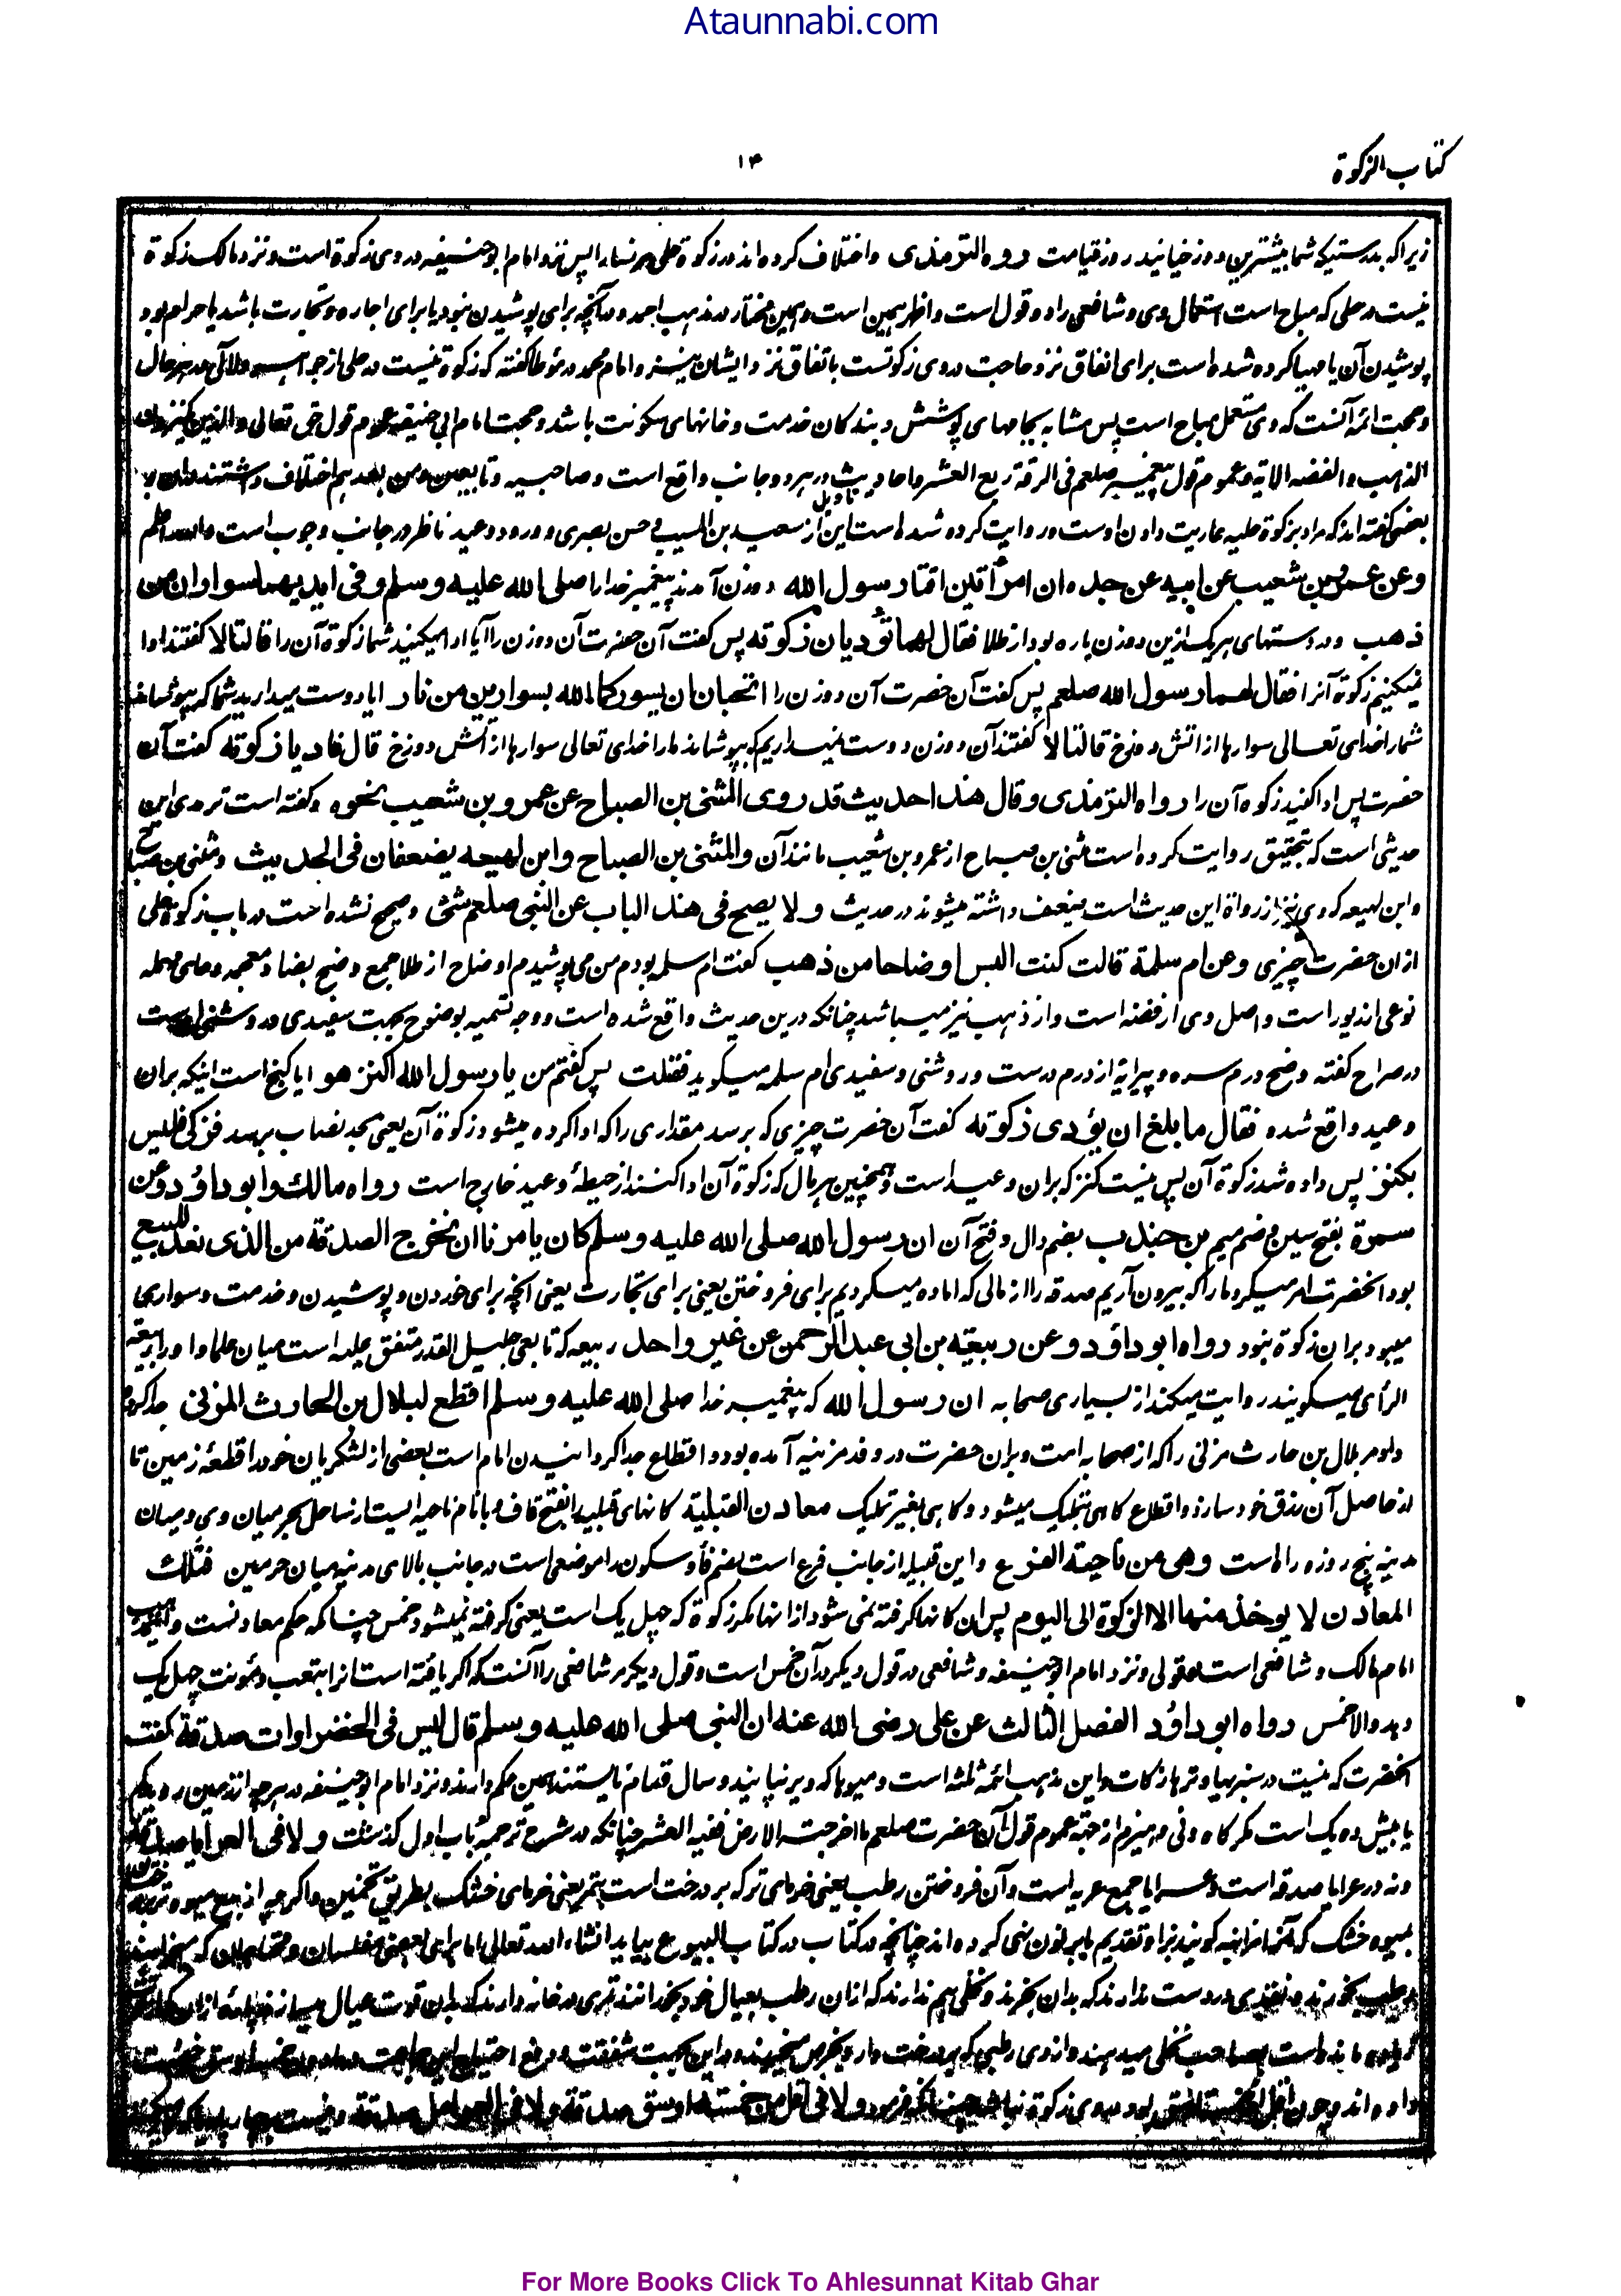 Ataunnabi.com
کتاب الزکوة
۱۴
زیراکه بدرستیکه شما بیشترین دوزخیانید روز قیامت رواه الترمذی واختلاف کرده اند در زکوة حلی نساء پس نزد امام ابوحنیفه در وی زکوة است و نزد مالک زکوة
نیست در حلی که مباح است استعمال وی و شافعی را دو قول است و اظهر همین است و همین مختار در مذهب احمد و در آنچه برای پوشیدن نبود یا برای اجاره و تجارت باشد یا حرام بود
پوشیدن آن یا مهیا کرده شده است برای انفاق نزد حاجت در وی زکوتست باتفاق نزد ایشان نیز و امام محمد در مؤطا گفته که زکوة نیست در حلی از جواهر و لآلی در هر حال
و حجت ائمه آنست که وی مستعمل مباح است پس مشابه بجامهای پوشش و بندگان خدمت و خانهای سکونت باشد و حجت امام ابی حنیفه عموم قول حق تعالی والذین یکنزون
الذهب والفضه الآیه و عموم قول پیغمبر صلعم فی الرقة ربع العشر و احادیث در هر دو جانب واقع است و صحابه و تابعین و من بعدهم اختلاف داشتند دران
بعضی گفته اند که مراد بزکوة حلیه عاریت دادن اوست و روایت کرده شده است این تاویل از سعید بن المسیب و حسن بصری و ورود وعید ناظر در جانب وجوب است والله اعلم
وعن عمرو بن شعیب عن ابیه عن جده ان امرأتین اتتا رسول الله دو زن آمدند پیغمبر خدا را صلی الله علیه وسلم وفی ایدیهما سواران من
ذهب و در دستهای هر یک ازین دو زن یاره بود از طلا فقال لهما تؤدیان زکوته پس گفت آن حضرت آن دو زن را آیا ادا میکنید شما زکوة آن را قالتا لا گفتند ادا
نمیکنیم زکوة آنرا فقال لهما رسول الله صلعم پس گفت آن حضرت آن دو زن را اتحبان ان یسورکما الله بسوارین من نار ایا دوست میدارید شما که بپوشاند
شمارا خدای تعالی سوارها از آتش دوزخ قالتا لا گفتند آن دو زن دوست نمیداریم که بپوشاند مارا خدای تعالی سوارها از آتش دوزخ قال فادیا زکوته گفت آن
حضرت پس ادا کنید زکوة آن را رواه الترمذی وقال هذا حدیث قد روی المثنی بن الصباح عن عمرو بن شعیب نحوه و گفته است ترمذی این
حدیثی است که بتحقیق روایت کرده است مثنی بن صباح از عمرو بن شعیب مانند آن والمثنی بن الصباح وابن لهیعه یضعفان فی الحدیث و مثنی بن صباح
وابن لهیعه که وی نیز از رواة این حدیث است ضعیف داشته میشوند در حدیث ولا یصح فی هذا الباب عن النبی صلعم شئ و صحیح نشده است در باب زکوة حلی
ازان حضرت چیزی وعن ام سلمة قالت کنت البس اوضاحا من ذهب گفت ام سلمه بودم من می پوشیدم اوضاح از طلا جمع وضح بضاد معجمه و حای مهمله
نوعی از زیور است و اصل وی از فضه است و از ذهب نیز میباشد چنانکه درین حدیث واقع شده است و وجه تسمیه بوضوح بجهت سفیدی و روشنی اوست
در صراح گفته وضح درم سره و پیرایه از درم درست و روشنی و سفیدی ام سلمه میگوید فقلت پس گفتم من یا رسول الله اکنز هو ایا گنج است اینکه بران
وعید واقع شده فقال ما بلغ ان یؤدی زکوته گفت آن حضرت چیزی که برسد مقداری را که ادا کرده میشود زکوة آن یعنی بحد نصاب برسد فزکی فلیس
بکنز پس داده شد زکوة آن پس نیست کنز که بران وعید است و همچنین هر مال که زکوة آن ادا کنند از حیطۀ وعید خارج است رواه مالک وابوداؤد وعن
سمرة بفتح سین و ضم میم بن جندب بضم دال و فتح آن ان رسول الله صلی الله علیه وسلم کان یامرنا ان نخرج الصدقة من الذی نعد للبیع
بود آنحضرت امر میکرد مارا که بیرون آریم صدقه را از مالی که اماده میکردیم برای فروختن یعنی برای تجارت یعنی آنچه برای خوردن و پوشیدن و خدمت و سواری
میبود بران زکوة نبود رواه ابوداؤد وعن ربیعة بن ابی عبد الرحمن عن غیر واحد ربیعه که تابعی جلیل القدر متفق علیه است میان علما و اورا ربیعة
الرأی میگویند روایت میکند از بسیاری صحابه ان رسول الله که پیغمبر خدا صلی الله علیه وسلم اقطع لبلال بن الحارث المزنی جدا کرد
و داد مر بلال بن حارث مزنی را که از صحابه است و بران حضرت در وفد مزینه آمده بود و اقطاع جدا گردانیدن امام است بعضی از لشکریان خود را قطعۀ زمین تا
از حاصل آن رزق خود سازد و اقطاع گاهی بتملیک میشود و گاهی بغیر تملیک معادن القبلیة کانهای قبلیه را بفتح قاف و با نام ناحیه ایست از ساحل بحر میان وی و میان
مدینه پنج روزه راه است وهی من ناحیة الفرع و این قبیله از جانب فرع است بضم فا و سکون را موضعی است در جانب بالای مدینه میان حرمین فتلک
المعادن لا یوخذ منها الا الزکوة الی الیوم پس ان کانها گرفته نمی شود از انها مگر زکوة که چهل یک است یعنی گرفته نمیشود خمس چنانکه حکم معادنست و این مذهب
امام مالک و شافعی است بقولی و نزد امام ابوحنیفه و شافعی در قول دیگر در آن خمس است و قول دیگر مر شافعی را آنست که اگر یافته است انرا بتعب و مؤنت چهل یک
دهد والا خمس رواه ابوداؤد الفصل الثالث عن علی رضی الله عنه ان النبی صلی الله علیه وسلم قال لیس فی الخضراوات صدقة گفت
آنحضرت که نیست در سبزیها و ترها زکات و این مذهب ائمه ثلثه است و میوها که دیر نپایند و سال تمام نایستند همین حکم دارند و نزد امام ابوحنیفه در هر چه از زمین روید کم
یا بیش ده یک است مگر کاه و نی و هیزم از جهة عموم قول آن حضرت صلعم ما اخرجته الارض ففیه العشر چنانکه در شرح ترجمۀ باب اول گذشت ولا فی العرایا صدقة
و نه در عرایا صدقه است و عرایا جمع عریه است و آن فروختن رطب یعنی خرمای تر که بر درخت است بتمر یعنی خرمای خشک بطریق تخمین و اگرچه از بیع میوه تر
بمیوه خشک که آنرا مزابنه گویند نهی کرده اند چنانچه در کتاب البیوع بیاید انشاء الله تعالی اما برای بعضی مفلسان و محتاجان که میخواهند
رطب بخورند و نقدی در دست ندارند که بدان بخرند و نخلی هم ندارند که ازان رطب بعیال خود بخورانند تمری در خانه دارند که بدان قوت عیال میسازند
مانده است بصاحب نخلی میدهند و از وی رطبی که بر درخت دارد بخرص میخرند و این بجهت شفقت و رفع احتیاج
داده اند و چون اقل بود در وی زکوة نباشد چنانکه فرمود ولا فی اقل من خمسة اوسق صدقة ولا فی العوامل صدقة و نیست در چارپایه
For More Books Click To Ahlesunnat Kitab Ghar